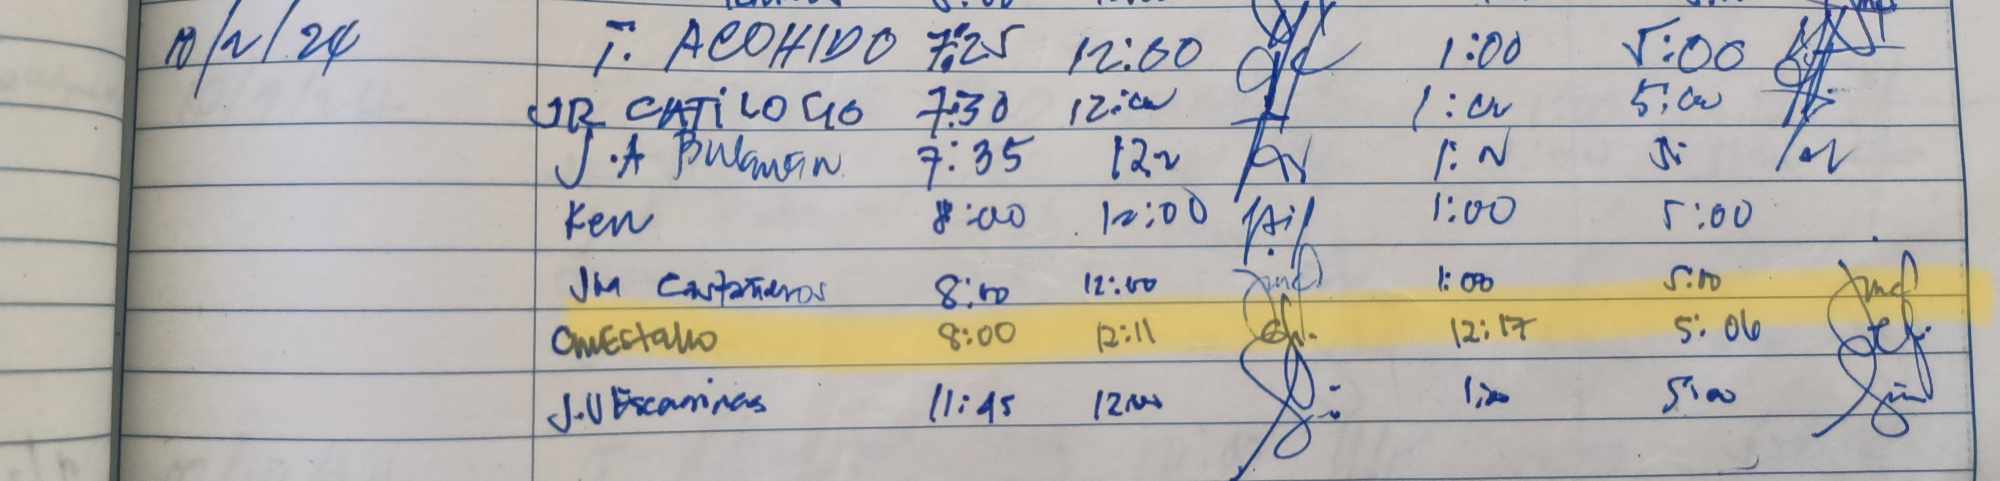 10/2/24 T. ACOHIDO 7:25 12:00 1:00 5:00
JR CATILOGO 7:30 12:00 1:00 5:00
J.A Bulawan 7:35 12 1: 5:
Ken 8:00 12:00 1:00 5:00
JM Castañeros 8:00 12:00 jmc 1:00 5:00 jmc
8:00 12:11 12:17 5:06
J.V Escaminas 11:45 12:00 1:00 5:00